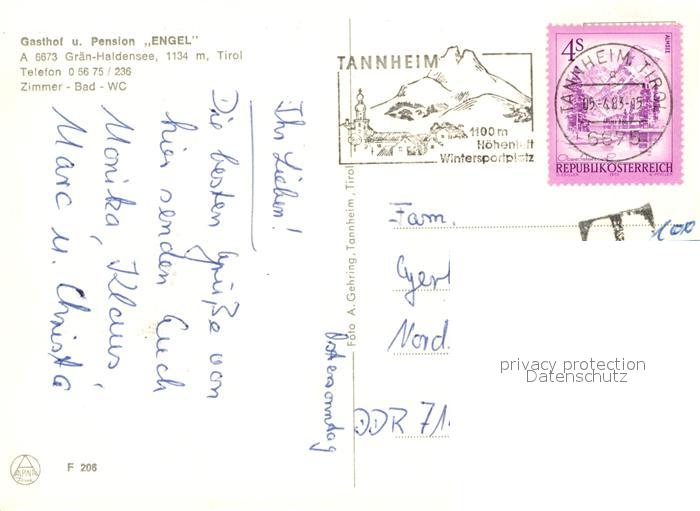 Gasthof u. Pension „ENGEL"
A 6673 Grän-Haldensee, 1134 m, Tirol
Telefon 0 56 75 / 236
Zimmer - Bad - WC
Ihr Lieben!
Die besten Grüße von
hier senden Euch
Monika, Klaus,
Marc u. Christa
Ostersonntag
F 206
ALPINA
Foto A. Gehring, Tannheim, Tirol
TANNHEIM
1100 m
Höhenluft
Wintersportplatz
4S
ALMSEE
REPUBLIK ÖSTERREICH
TANNHEIM, TIROL
05.-4.83-05
6675
Fam.
T
100
Gert
Nord.
DDR 71
privacy protection
Datenschutz